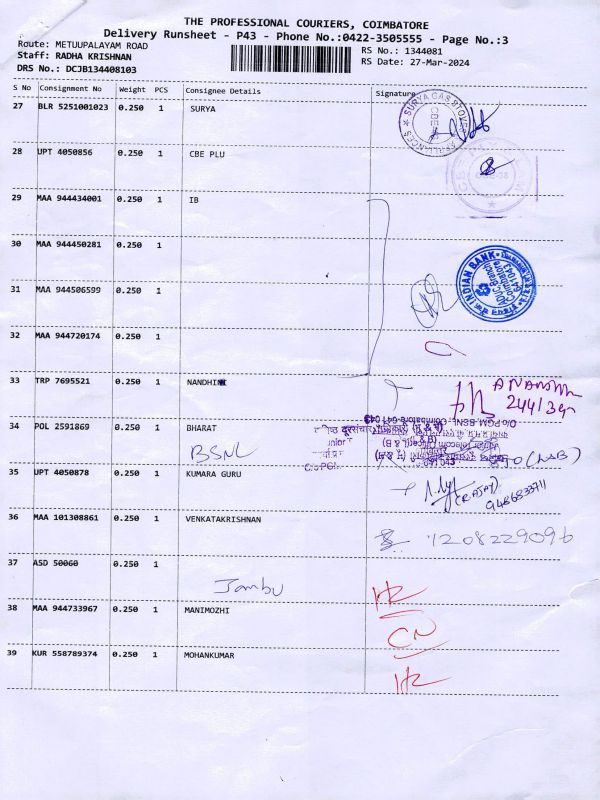 THE PROFESSIONAL COURIERS, COIMBATORE
Delivery Runsheet - P43 - Phone No.:0422-3505555 - Page No.:3
Route: METUUPALAYAM ROAD
RS No.: 1344081
Staff: RADHA KRISHNAN
RS Date: 27-Mar-2024
DRS No.: DCJB134408103
S No Consignment No Weight PCS Consignee Details Signature
27 BLR 5251001023 0.250 1 SURYA
SURYA GAS STOVES
28 UPT 4050856 0.250 1 CBE PLU
29 MAA 944434001 0.250 1 IB
30 MAA 944450281 0.250 1
INDIAN BANK
Coimbatore
641043
31 MAA 944506599 0.250 1
32 MAA 944720174 0.250 1
33 TRP 7695521 0.250 1 NANDHINI
34 POL 2591869 0.250 1 BHARAT
BSNL
35 UPT 4050878 0.250 1 KUMARA GURU
9486833711
36 MAA 101308861 0.250 1 VENKATAKRISHNAN
37 ASD 50060 0.250 1
Jambu
38 MAA 944733967 0.250 1 MANIMOZHI
CN
39 KUR 558789374 0.250 1 MOHANKUMAR